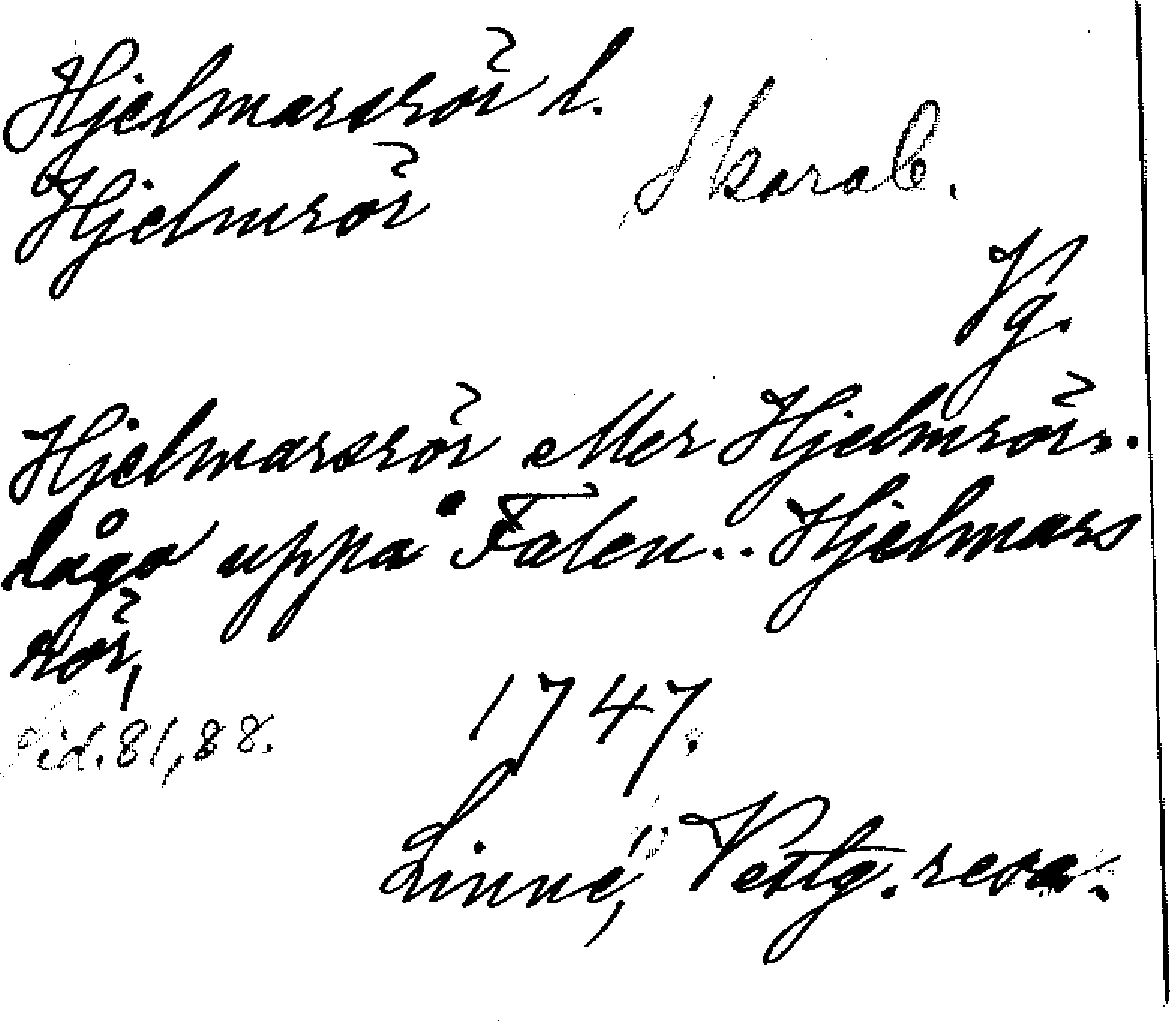 Hjelmarsrör l.
Hjelmrör
Skarab.
Vg.
Hjelmarsrör eller Hjelmrör..
lågo uppå Falen.. Hjelmars
rör,
sid. 81, 88.
1747.
Linné, Vestg. resa.